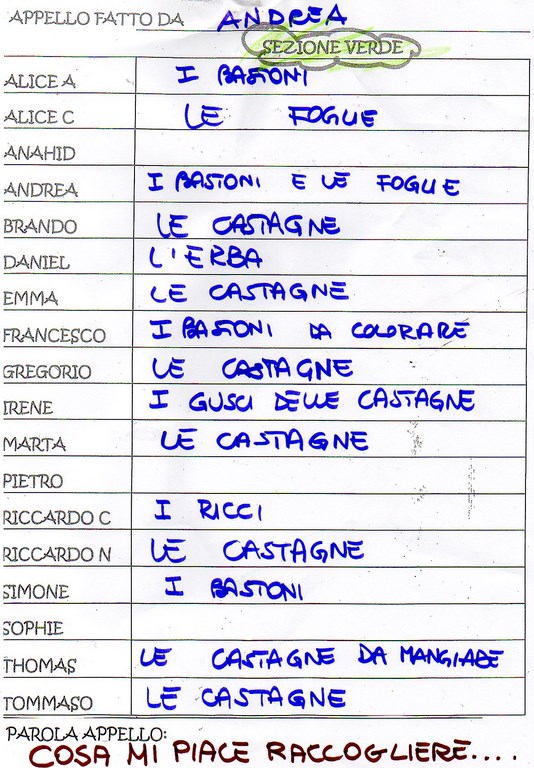 APPELLO FATTO DA ANDREA
SEZIONE VERDE
ALICE A I BASTONI
ALICE C LE FOGLIE
ANAHID
ANDREA I BASTONI E LE FOGLIE
BRANDO LE CASTAGNE
DANIEL L'ERBA
EMMA LE CASTAGNE
FRANCESCO I BASTONI DA COLORARE
GREGORIO LE CASTAGNE
IRENE I GUSCI DELLE CASTAGNE
MARTA LE CASTAGNE
PIETRO
RICCARDO C I RICCI
RICCARDO N LE CASTAGNE
SIMONE I BASTONI
SOPHIE
THOMAS LE CASTAGNE DA MANGIARE
TOMMASO LE CASTAGNE
PAROLA APPELLO:
COSA MI PIACE RACCOGLIERE....